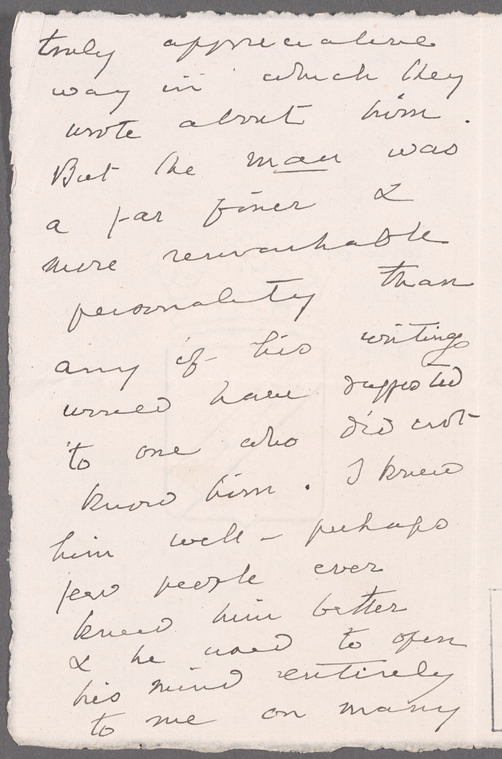 truly appreciative
way in which they
wrote about him.
But the man was
a far finer &
more remarkable
personality than
any of his writings
would have suggested
to one who did not
know him. I knew
him well - perhaps
few people ever
knew him better
& he used to open
his mind entirely
to me on many